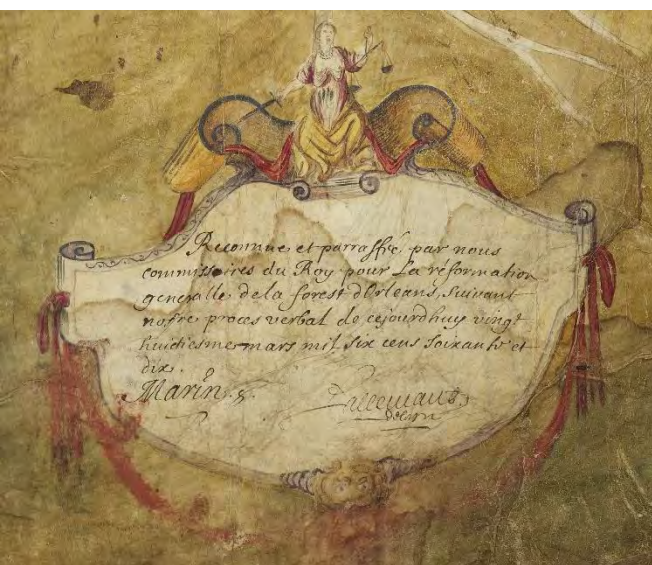 Reconnue et parraffée par nous
commissaires du Roy pour La réformation
generalle de la forest dOrleans, Suivant
nostre proces verbal de cejourdhuy vingt
huictiesme mars mil six cens soixante et
dix.
Marin